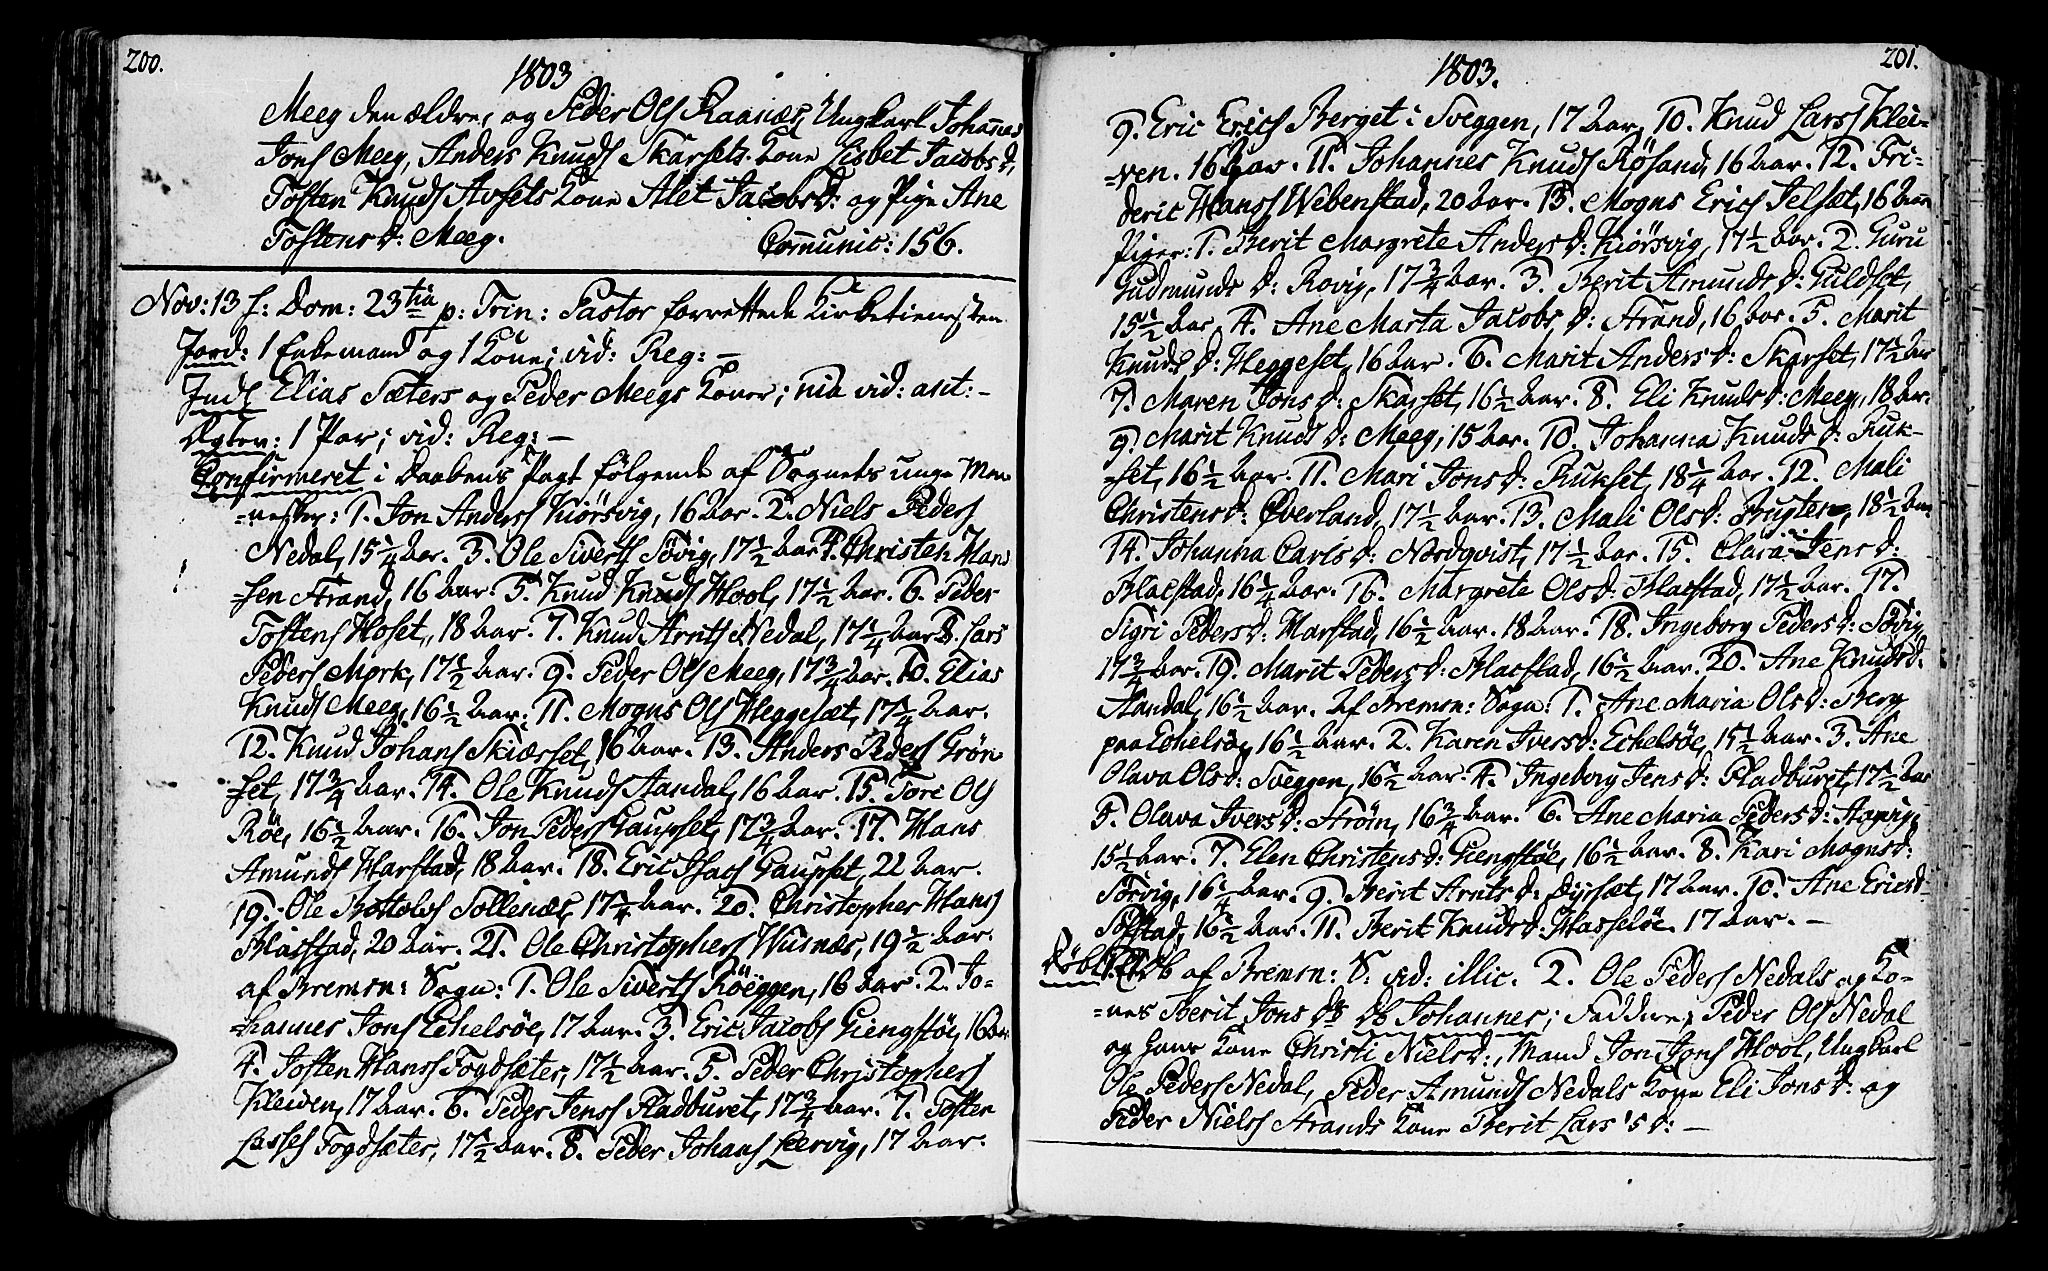 200.
1803
Meeg den ældre, og Peder Ols Raanæs, Ungkarl Johanes
Jons Meeg, Anders Knuds Skarsets Kone Lisbet Jacobs d,
Tosten Knuds Avsets Kone Alet Jacobs D: og Pige Ane
Tostens d: Meeg. Communic: 156.
Nov: 13 f: Dom: 23tia p: Trin: Pastor forrettede Kirketienesten
Jord: 1 Enkemand og 1 Kone; vid: Reg: —
Indl Elias Sæters og Peder Meegs Koner; ma vid: ant: —
Ægtev: 1 Par; vid: Reg: —
Confirmeret i Daabens Pagt følgende af Sognets unge Men
-nesker: 1. Jon Anders Kiörsvig, 16 Aar. 2. Niels Peders
Nedal, 15 1/4 Aar. 3. Ole Siverts Søvig, 17 1/2 Aar 4. Christen Han
-sen Strand, 16 Aar. 5. Knud Knuds Hool, 17 1/2 Aar. 6. Peder
Tostens Hoset, 18 Aar. 7. Knud Arnts Nedal, 17 1/4 Aar 8. Lars
Peders Mork, 17 1/2 Aar. 9. Peder Ols Meeg, 17 3/4 Aar. 10. Elias
Knuds Meeg, 16 1/2 Aar. 11. Mogns Ols Heggeset, 17 1/4 Aar.
12. Knud Johans Skiærset, 16 Aar. 13. Anders Peders Grön
-set, 17 3/4 Aar. 14. Ole Knuds Aandal, 16 Aar. 15. Tore Ols
Röe, 16 1/2 Aar. 16. Jon Peders Gaupset, 17 3/4 Aar. 17. Hans
Amunds Harstad, 18 Aar. 18. Eric Isacs Gaupset, 22 Aar.
19. Ole Bottolvs Sollenæs, 17 1/4 Aar. 20. Christopher Hans
Blaistad, 20 Aar. 21. Ole Christophers Husnæs, 19 1/2 Aar.
af Bremsn: Sogn: 1. Ole Siverts Röeggen, 16 Aar. 2. Jo-
-hannes Jons Eckelsöe, 17 Aar. 3. Eric Jacobs Giengstöe, 16 Aar
4. Josten Hans Fogdsæter, 17 1/2 Aar. 5. Peder Christophers
Kleiven, 17 Aar. 6. Peder Jens Fladburet, 17 3/4 Aar. 7. Tosten
Lasses Fogdsæter, 17 1/2 Aar. 8. Peder Johans Leervig, 17 Aar.
201.
1803.
9. Eric Erics Berget i Sveggen, 17 Aar, 10. Knud Lars Klei-
-ven. 16 Aar. 11. Johannes Knuds Rösand, 16 Aar. 12. Fri-
deric Hans Webenstad, 20 Aar. 13. Mogns Erics Jelset, 16 Aar
Piger: 1. Berit Margrete Anders d: Kiörsvig, 17 1/2 Aar. 2. Guru
Gudmunds d: Rovig, 17 3/4 Aar. 3. Berit Amunds d: Guldset,
15 1/2 Aar. 4. Ane Marta Jacobs d: Strand, 16 Aar. 5. Marit
Knuds d: Heggeset, 16 Aar. 6. Marit Anders d: Skarset, 17 1/2 Aar
7. Maren Jons d: Skarset, 16 1/2 Aar. 8. Eli Knuds d: Meeg, 18 Aar.
9. Marit Knuds d: Meeg, 15 Aar. 10. Johanna Knuds d: Ruk-
-set, 16 1/2 Aar. 11. Mari Jons d: Rukset, 18 1/4 Aar. 12. Mali
Christens d: Øverland, 17 1/2 Aar. 13. Mali Ols d: Brygten, 18 1/2 Aar
14. Johanna Carls d: Nordqvist, 17 1/2 Aar. 15. Clara Jens d:
Blaestad, 16 1/4 Aar. 16. Margrete Ols d: Blaestad, 17 1/2 Aar. 17.
Sigri Peders d: Harstad, 16 1/2 Aar. 18 Aar. 18. Ingeborg Peders d: Søvig,
17 3/4 Aar. 19. Marit Peders d: Blaestad, 16 1/2 Aar. 20. Ane Knuds d.
Aandal, 16 1/2 Aar. Af Bremsn: Sogn: 1. Ane Maria Ols d: Berg
paa Eckelsöe, 16 1/2 Aar. 2. Karen Ivers d: Eckelsöe, 15 1/2 Aar. 3. Ane
Olava Ols d: Sveggen, 16 1/2 Aar. 4. Ingeborg Jens d: Fladburet, 17 1/2 Aar
5. Olava Ivers d: Ström, 16 3/4 Aar. 6. Ane Maria Peders d:
15 1/2 Aar. 7. Elen Christens d: Giengstöe, 16 1/2 Aar. 8. Kari Mogns d:
Sörvig, 16 1/4 Aar. 9. Berit Arnts d: Dyrsæt, 17 Aar. 10. Ane Erics d
Solstad, 16 1/2 Aar. 11. Berit Knuds d: Hasselöe. 17 Aar. —
Döbt: 1. Db af Bremsn: S. vid: illic. 2. Ole Peders Nedals og Ko-
-nes Berit Jons Ds Db Johannes; Faddere, Peder Ols Nedal
og hans Kone Christi Niels d:, Mand Jon Jons Hool, Ungkarl
Ole Peders Nedal, Peder Amunds Nedals Kone Eli Jons d: og
Peder Niels Strands Kone Berit Lars's d: —